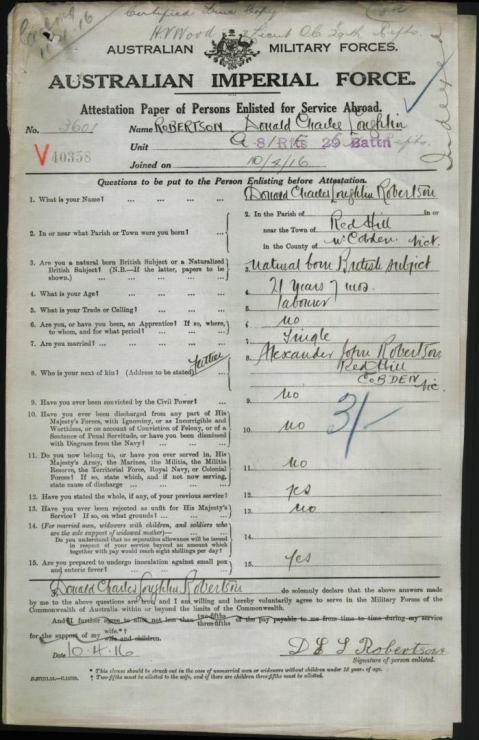 Certified True Copy
H V Wood Lieut
10.4.16
Indexed
AUSTRALIAN MILITARY FORCES.
AUSTRALIAN IMPERIAL FORCE.
Attestation Paper of Persons Enlisted for Service Abroad.
No. 3601 Name ROBERTSON Donald Charles Loughlin
V40358 Unit 8 Rfts 29 Battn
Joined on 10/4/16
Questions to be put to the Person Enlisting before Attestation.
1. What is your Name? ... ... ... Donald Charles Loughlin Robertson
2. In or near what Parish or Town were you born? ... 2. In the Parish of in or
near the Town of Red Hill
in the County of Nr Cobden Vict.
3. Are you a natural born British Subject or a Naturalized
British Subject? (N.B.—If the latter, papers to be
shown.) ... 3. natural born British subject
4. What is your Age? ... 4. 21 years 7 mos.
5. What is your Trade or Calling? ... 5. labourer
6. Are you, or have you been, an Apprentice? If so, where,
to whom, and for what period? ... 6. no
7. Are you married? ... 7. Single
8. Who is your next of kin? (Address to be stated) Father 8. Alexander John Robertson
Red Hill
COBDEN Vic.
9. Have you ever been convicted by the Civil Power? ... 9. no
10. Have you ever been discharged from any part of His
Majesty's Forces, with Ignominy, or as Incorrigible and
Worthless, or on account of Conviction of Felony, or of a
Sentence of Penal Servitude, or have you been dismissed
with Disgrace from the Navy? ... 10. no
3/-
11. Do you now belong to, or have you ever served in, His
Majesty's Army, the Marines, the Militia, the Militia
Reserve, the Territorial Force, Royal Navy, or Colonial
Forces? If so, state which, and if not now serving,
state cause of discharge ... 11. no
12. Have you stated the whole, if any, of your previous service? 12. yes
13. Have you ever been rejected as unfit for His Majesty's
Service? If so, on what grounds? ... 13. no
14. (For married men, widowers with children, and soldiers who
are the sole support of widowed mother)—
Do you understand that no separation allowance will be issued
in respect of your service beyond an amount which
together with pay would reach eight shillings per day? 14.
15. Are you prepared to undergo inoculation against small pox
and enteric fever? ... 15. yes
I, Donald Charles Loughlin Robertson do solemnly declare that the above answers made
by me to the above questions are true, and I am willing and hereby voluntarily agree to serve in the Military Forces of the
Commonwealth of Australia within or beyond the limits of the Commonwealth.
And I further agree to allot not less than two-fifths three-fifths of the pay payable to me from time to time during my service
for the support of my wife.*† wife and children.
Date 10.4.16 D C L Robertson
Signature of person enlisted.
* This clause should be struck out in the case of unmarried men or widowers without children under 18 years of age.
† Two-fifths must be allotted to the wife, and if there are children three-fifths must be allotted.